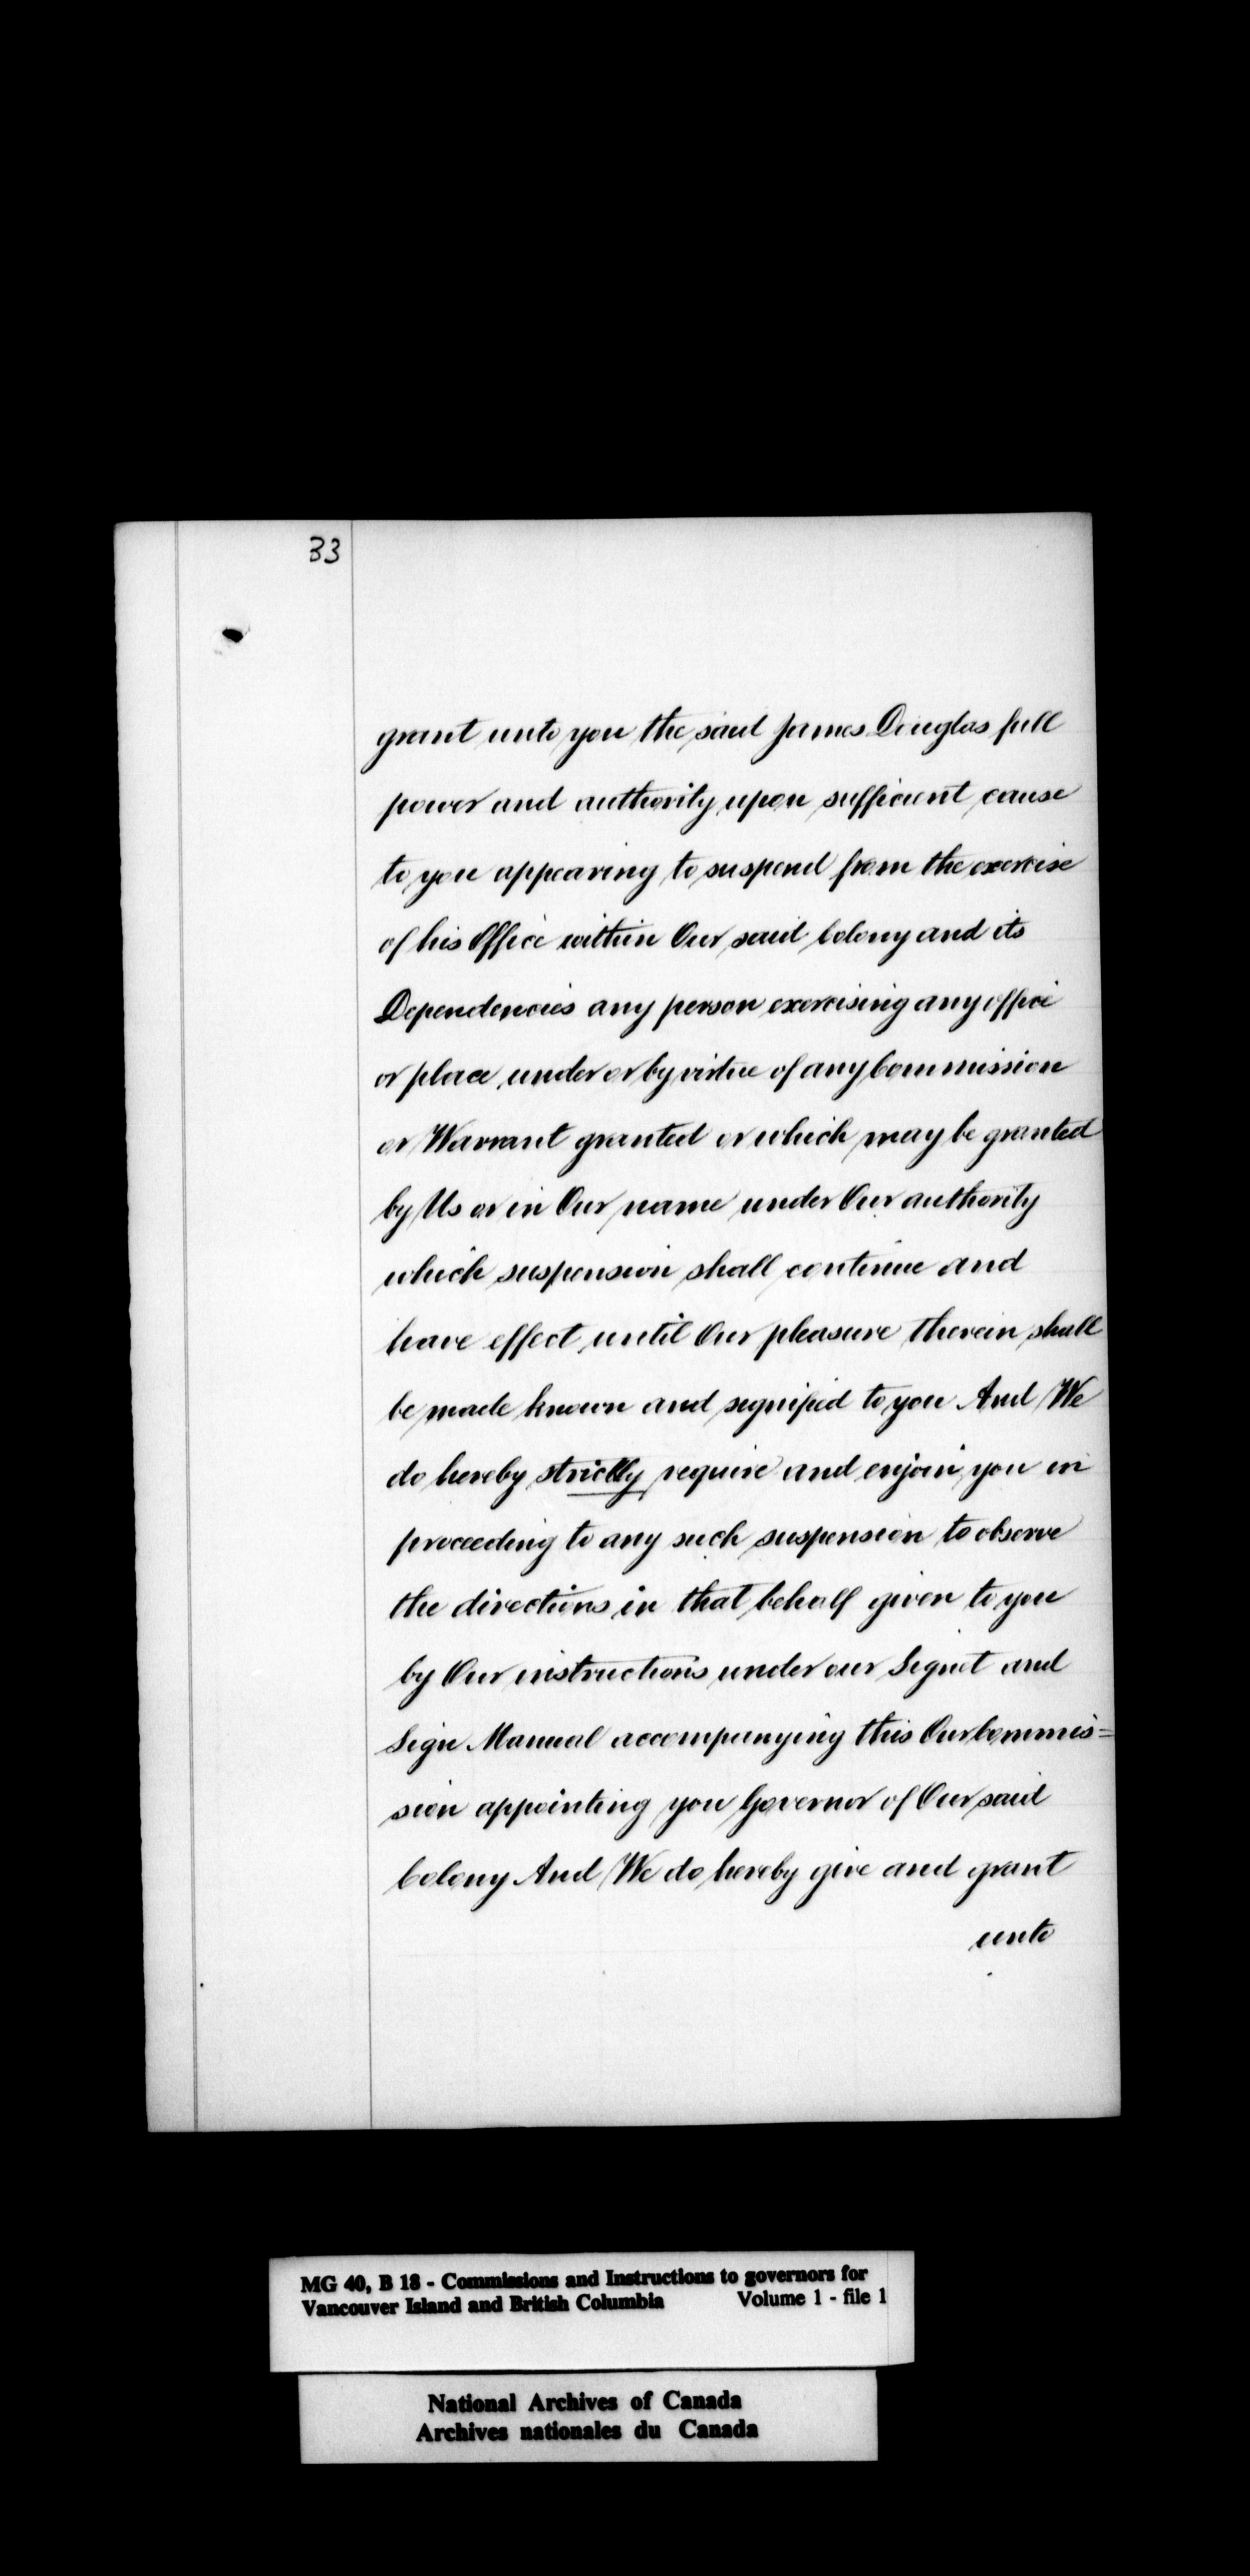 33
grant unto you the said James Douglas full
power and authority upon sufficient cause
to you appearing to suspend from the exercise
of his Office within Our said Colony and its
Dependencies any person exercising any office
or place under or by virtue of any Commission
or Warrant granted or which may be granted
by Us or in Our name under Our authority
which suspension shall continue and
have effect until Our pleasure therein shall
be made known and signified to you And We
do hereby strictly require and enjoin you in
proceeding to any such suspension to observe
the directions in that behalf given to you
by Our instructions under our Signet and
Sign Manual accompanying this Our Commis=
sion appointing you Governor of Our said
Colony And We do hereby give and grant
unto
MG 40, B 18 - Commissions and Instructions to governors for
Vancouver Island and British Columbia Volume 1 - file 1
National Archives of Canada
Archives nationales du Canada